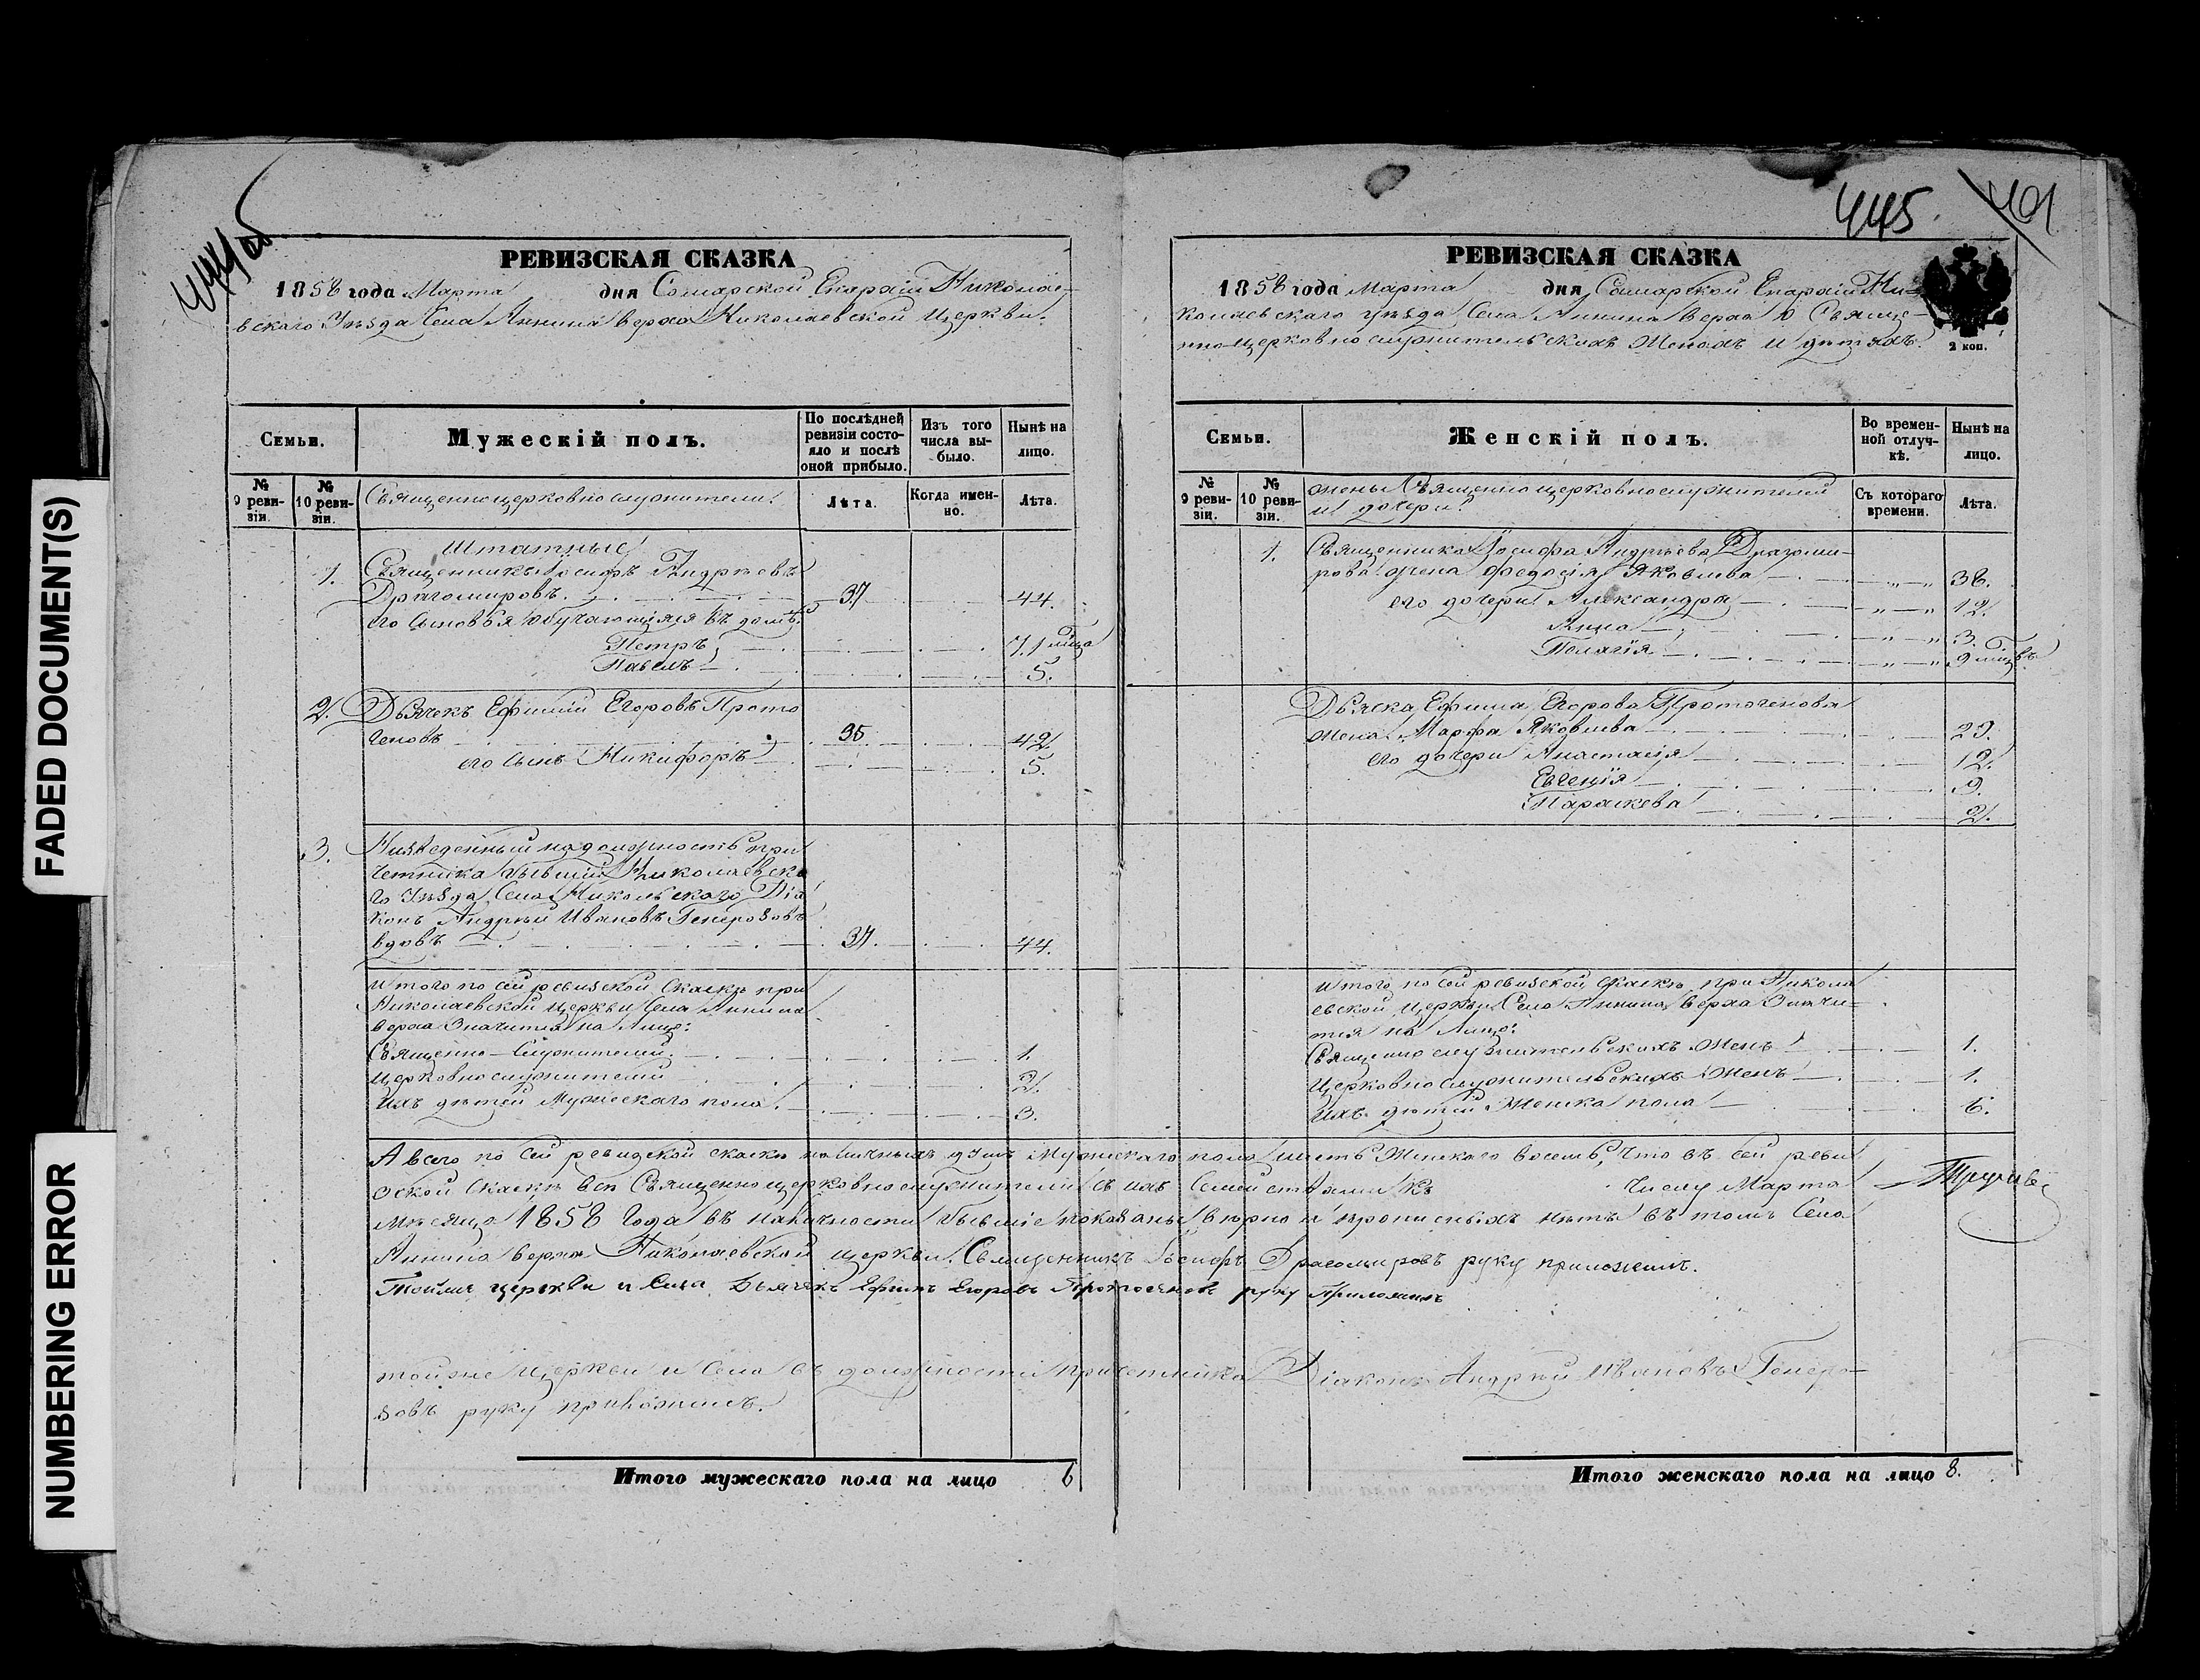 FADED DOCUMENT(S)
NUMBERING ERROR
444 об
РЕВИЗСКАЯ СКАЗКА
1858 года Марта дня Самарской Епархіи Николае-
вскаго Уѣзда Села Аннина верха Николаевской Церкви.
Семьи.
Мужескій полъ.
По послѣдней ревизіи состо-
яло и послѣ оной прибыло.
Изъ того числа вы-
было.
Нынѣ на лицо.
№ 9 реви-
зіи.
№ 10 реви-
зіи.
Священноцерковнослужители.
Лѣта.
Когда имен-
но.
Лѣта.
Штатные
1. Священникъ Іосифъ Андреевъ
Драгомировъ. 37 44.
его сыновья обучающіяся въ домѣ.
Петръ 7. 1 мѣсяца
Павелъ 5.
2. Дьячекъ Ефимій Егоровъ Прото
геновъ 35 42.
его сынъ Никифоръ 5.
3. Низведенный на должность при
четника бывшій Николаевска
го Уѣзда Села Никольскаго Діа
конъ Андрей Ивановъ Генерозовъ
вдовъ 37. 44.
Итого по сей ревизской Сказкѣ при
Николаевской церкви Села Аннина
верха Значится на Лицо:
Священно-Служителей. 1.
Церковнослужителей 2.
Ихъ дѣтей Мужескаго пола. 3.
445. 401
РЕВИЗСКАЯ СКАЗКА
1858 года Марта дня Самарской Епархіи Ни-
колаевскаго уѣзда Села Аннина верха о Священ-
но-церковнослужительскихъ Женахъ и дѣтяхъ.
2 коп.
Семьи.
Женскій полъ.
Во времен-
ной отлуч-
кѣ.
Нынѣ на лицо.
№ 9 реви-
зіи.
№ 10 реви-
зіи.
жены Священноцерковнослужителей
и дочери.
Съ котораго времени.
Лѣта.
1. Священника Іосифа Андреева Драгоми-
рова жена Федосія Яковлева 38.
его дочери Александра 12.
Анна 3.
Пелагія 9 мѣсяцевъ
Дьячка Ефима Егорова Протогенова
жена Марфа Яковлева 29.
его дочери Анастасія 12.
Евгенія 9.
Параскева 2.
Итого по сей ревизской Сказкѣ при Никола
евской церкви Села Аннина верха Значи-
тся на Лицо:
Священнослужительскихъ Женъ 1.
Церковнослужительскихъ Женъ 1.
Ихъ дѣтей Женска пола 6.
А всего по сей ревизской сказкѣ наличныхъ душъ Мужескаго пола шесть Женскаго восемь, Что въ сей реви
зской Сказкѣ всѣ Священноцерковнослужители съ ихъ Семействами къ числу Марта
мѣсяца 1858 Года въ наличности бывшіе показаны вѣрно и прописныхъ нѣтъ въ томъ Села
Аннина верха Николаевской церкви Священникъ Іосифъ Драгомировъ руку приложилъ.
Тойже церкви и Села Дьячекъ Ефимъ Егоровъ Протогеновъ руку Приложилъ
тойже Церкви и Села въ должности причетника Діаконъ Андрей Ивановъ Генеро-
зовъ руку приложилъ.
Итого мужескаго пола на лицо 6
Итого женскаго пола на лицо 8.